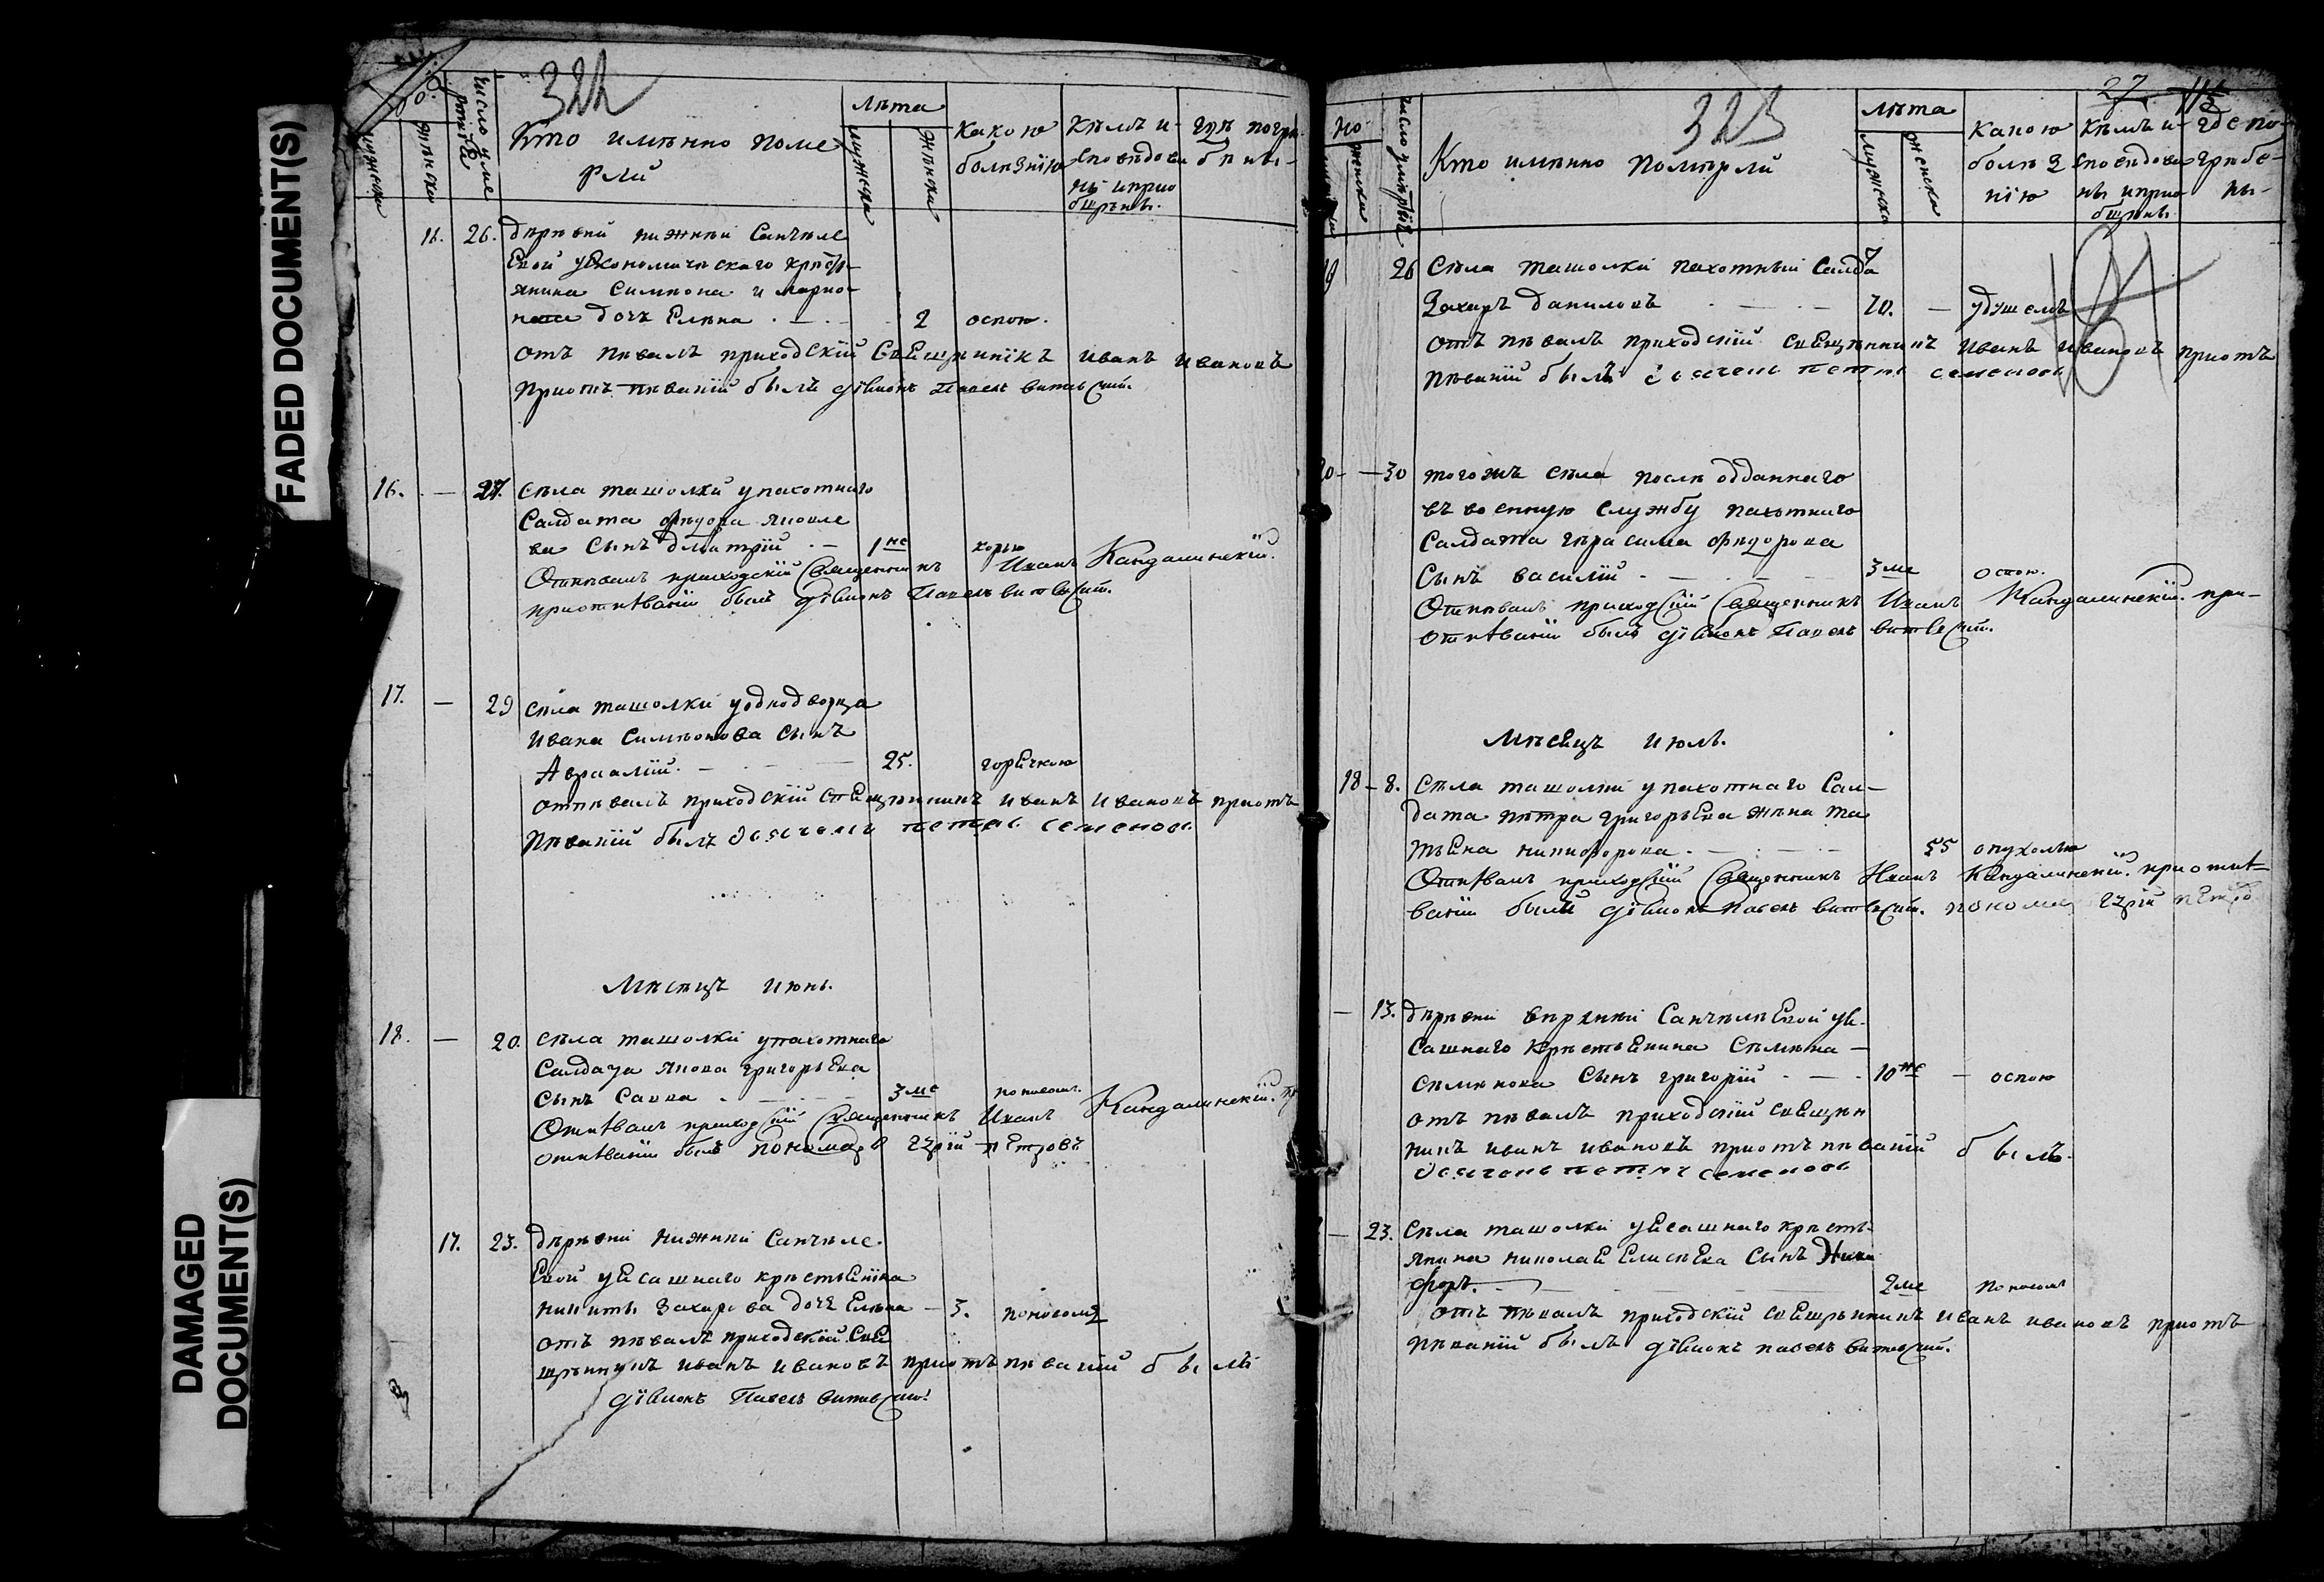 FADED DOCUMENT(S)
DAMAGED
DOCUMENT(S)
322
но.
мужеска
женска
число уме
ртія
Кто имѣнно поме
рли
лѣта
мужеска
женска
какою
болѣзнію
кѣмъ и-
сповѣдова
ны и прио
бщены.
гдѣ погре
бѣны-
16. 26. дѣрѣвни нижнѣй Санчѣле
Евой у економическаго крѣст-
янина Симиона
дочь Елѣна 2 оспою.
отъ пѣвалъ приходскій свЕщѣнникъ иванъ ивановъ
приотъ пѣваніи былъ діаконъ Павелъ
16. — 27. сѣла ташолки у пахотнаго
Салдата ѳедора яковле
ва сынъ дмитрій — 1 не корью
Отпѣвалъ приходскій Священникъ Иванъ Кандалинскій.
приотпѣваніи былъ діаконъ Павелъ
17. — 29 сѣла ташолки у однодворца
ивана симионова сынъ
Авраамій. — 25. горЕчкою
отпѣвалъ приходскій свЕщѣнникъ иванъ ивановъ приотъ
пѣваніи былъ дьячекъ петръ семеновъ
Мѣсецъ июнь.
18. — 20. сѣла ташолки у пахотнаго
Салдата якова григорьЕва
сынъ Савва 3 ме поносомъ
Отпѣвалъ приходскій Священникъ Иванъ Кандалинскій. пр
отпѣваніи былъ пономарь пЕтровъ
17. 23. дѣрѣвни нижнѣй Санчѣле-
Евой у ясашнаго крѣстьЕнина
никиты Захарова дочь Елѣна — 3. поносомъ
отъ пѣвалъ приходскій свЕ
щѣнникъ иванъ ивановъ приотъ пѣваніи былъ
діаконъ Павелъ
323
27
но
женска
число умертвія
Кто имѣнно помѣрли
лѣта
мужеска
женска
какою
болѣз
нію
кѣмъ и-
сповѣдова
ны и прио
бщены
где по-
грѣбе-
ны-
19 26 Сѣла ташолки пахотный салда
Захаръ даниловъ 70. — удушемъ
отъ пѣвалъ приходскій свЕщѣнникъ иванъ ивановъ приотъ
пѣваніи былъ дьячекъ петръ семеновъ
20 — 30 тогожъ сѣла послѣ одданнаго
въ военную службу пахотнаго
Салдата гѣрасима ѳедорова
Сынъ василій 3 ме оспою.
Отпѣвалъ приходскій Священникъ Иванъ Кандалинскій. при-
отпѣваніи былъ діаконъ Павелъ
Мѣсецъ июль.
18 — 8. Сѣла ташолки у пахотнаго Сал-
дата пѣтра григорьЕва жѣна та
тьЕна никиѳорова 55 опухолью
Отпѣвалъ приходскій Священникъ Иванъ Кандалинскій. приотпѣ
ваніи были діаконъ Павелъ пономарь пЕтро
— 13. дѣрѣвни вѣрхнѣй СанчѣлѣЕвой у я-
сашнаго крѣстьЕнина Сѣмѣна —
сынъ григорій 10 не — оспою
отъ пѣвалъ приходскій свЕщѣн
никъ иванъ ивановъ приотъ пѣваніи былъ
дьячекъ петръ семеновъ
— 23. Сѣла ташолки у ясашнаго крѣсть-
янина николаЕ ЕлисѣЕва сынъ Ники
форъ. 2 ме поносомъ
отъ пѣвалъ приходскій свЕщѣнникъ иванъ ивановъ приотъ
пѣваніи былъ діаконъ павелъ